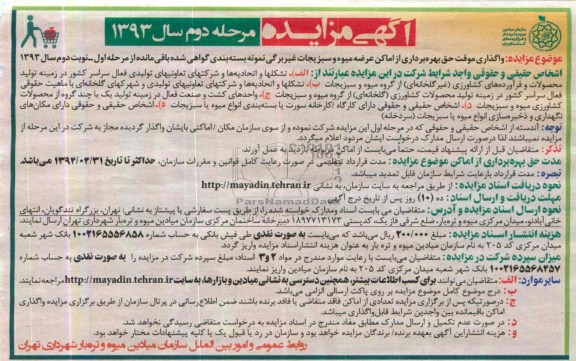 آگهی مزایده مرحله دوم سال ۱۳۹۳
موضوع مزایده: واگذاری موقت حق بهره‌برداری از اماکن عرضه میوه و سبزیجات غیربرگی نمونه بسته‌بندی گواهی شده باقی‌مانده از مرحله اول ـ نوبت دوم سال ۱۳۹۳
اشخاص حقیقی و حقوقی واجد شرایط شرکت در این مزایده عبارتند از: الف)ـ تشکلها و اتحادیه‌ها و شرکتهای تعاونیهای تولیدی فعال سراسر کشور در زمینه تولید
محصولات و فرآورده‌های کشاورزی (غیرگلخانه‌ای) از گروه میوه و سبزیجات ب)ـ تشکلها و اتحادیه‌ها و شرکتهای تعاونیهای تولیدی و شهرکهای گلخانه‌ای با ماهیت حقوقی
فعال سراسر کشور در زمینه تولید محصولات کشاورزی (گلخانه‌ای) از گروه میوه و سبزیجات ج)ـ واحدهای کشت و صنعت فعال در زمینه تولید یک یا چند گروه از محصولات
کشاورزی میوه و سبزیجات د)ـ اشخاص حقیقی و حقوقی دارای کارگاه /کارخانه سورت یا بسته‌بندی انواع میوه یا سبزیجات ه)ـ اشخاص حقیقی و حقوقی دارای مکان‌های
نگهداری و ذخیره‌سازی انواع میوه یا سبزیجات (سردخانه)
توجه: آندسته از اشخاص حقیقی و حقوقی که در مرحله اول این مزایده شرکت نموده و از سوی سازمان مکان /اماکنی بایشان واگذار گردیده مجاز به شرکت در این مرحله از
مزایده نمیباشند لذا درصورت ارسال مدارک، درخواست ایشان مردود اعلام میگردد.
تذکر: متقاضیان قبل از ارائه پیشنهاد قیمت، حتماً می‌بایست از اماکن مرتبط بازدید به عمل آورند.
مدت حق بهره‌برداری از اماکن موضوع مزایده: مدت قرارداد تنظیمی در صورت رعایت کامل قوانین و مقررات سازمان، حداکثر تا تاریخ ۱۳۹۴/۰۴/۳۱ می‌باشد.
تبصره: مدت قرارداد بارعایت شرایط سازمان قابل تمدید میباشد.
نحوه دریافت اسناد مزایده: از طریق مراجعه به سایت سازمان، به نشانی http://mayadin.tehran.ir
مهلت دریافت و ارسال اسناد: ده (۱۰) روز پس از تاریخ درج آگهی
نحوه ارسال اسناد مزایده و آدرس: متقاضیان می بایست اسناد ومدارک خواسته شده را از طریق پست سفارشی یا پیشتاز به نشانی: تهران، بزرگراه تندگویان، انتهای
خانی‌آبادنو، میدان مرکزی میوه و تره‌بار، ضلع شرقی فاز یک، کدپستی ۱۸۹۲۷۱۳۱۷۳ دبیرخانه ساختمان مرکزی سازمان میادین میوه و تره‌بار شهرداری تهران ارسال نمایند.
هزینه انتشار اسناد مزایده: مبلغ ۲۰۰/۰۰۰ ریال می‌باشد که می‌بایست به صورت نقدی طی فیش بانکی به حساب شماره ۱۰۰۲۱۶۵۵۵۶۸۵۸ بانک شهر شعبه
میدان مرکزی کد ۲۰۵ به نام سازمان میادین میوه و تره بار به عنوان هزینه انتشار اسناد مزایده واریز گردد.
میزان سپرده شرکت در مزایده: متقاضیان می‌بایست با رعایت موارد مندرج در مواد ۲ و ۳ اسناد، مبلغ سپرده شرکت در مزایده را به صورت نقدی به حساب شماره
۱۰۰۲۱۶۵۵۶۸۲۵۷ بانک شهر شعبه میدان مرکزی کد ۲۰۵ به نام سازمان میادین واریز نمایند.
سایر موارد: الف: متقاضیان می‌توانند برای کسب اطلاعات بیشتر، همچنین دسترسی به نشانی میادین و بازارها، به سایت http://mayadin.tehran.ir، مراجعه نمایند.
ب: درج موضوع کامل موضوع مزایده بر روی پاکت ارسالی الزامی می‌باشد.
ج: درصورتیکه پس از برگزاری مزایده تعدادی از اماکن فاقد متقاضی یا فاقد برنده باشند ضمن اطلاع‌رسانی در پرتال سازمان از طریق برگزاری مزایده واگذاری
اماکن باقیمانده بین واجدین شرایط قابل‌واگذاری میباشد.
د: در صورت عدم تکمیل و ارسال مدارک مطابق مفاد مندرج در اسناد مزایده به درخواست متقاضی رسیدگی نخواهد شد.
و: هزینه انتشار این آگهی بعهده برنده/ برندگان مزایده خواهد بود و سازمان در رد یا قبول یک یا کلیه پیشنهادات مختار خواهد بود.
روابط عمومی و امور بین الملل سازمان میادین میوه و تره‌بار شهرداری تهران